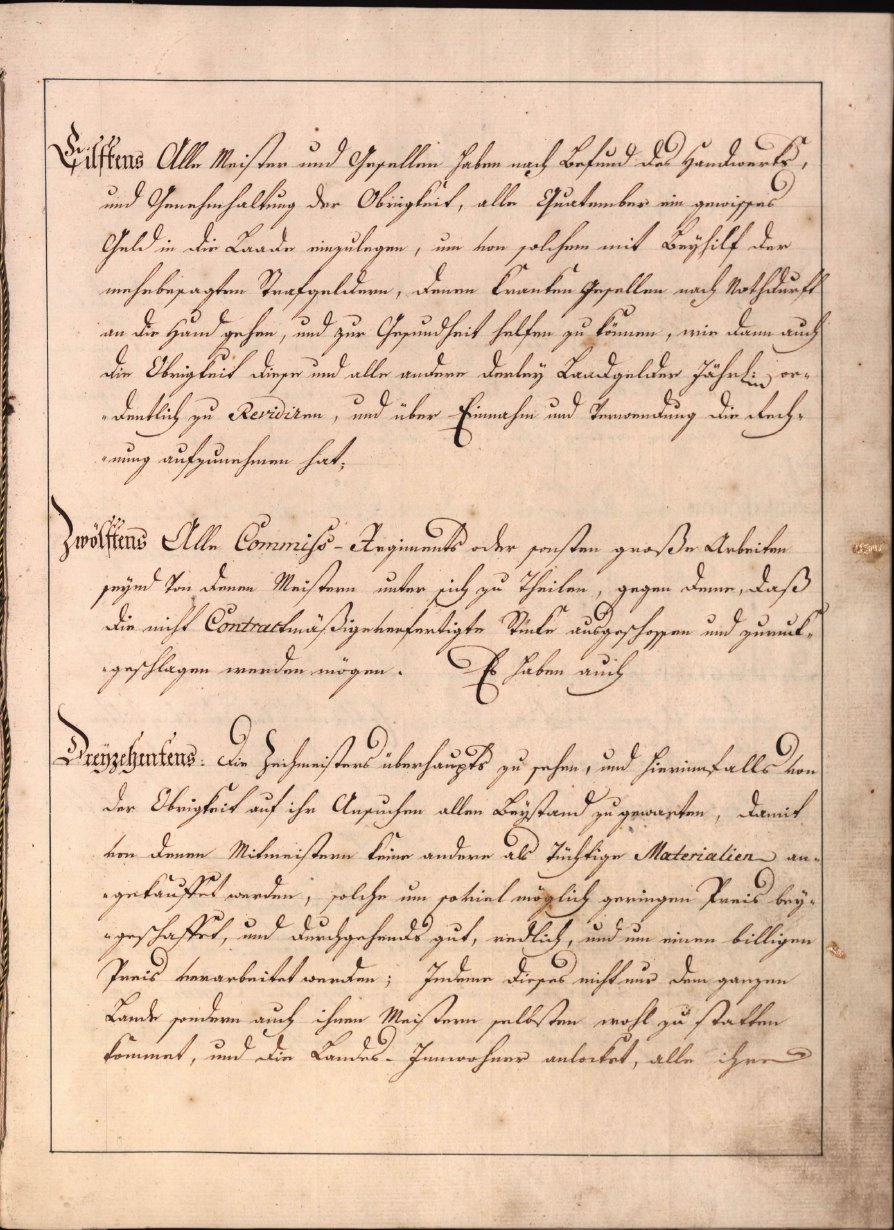 Eilftens Alle Meister und Gesellen haben nach Befund des Handwerks,
und Genehmhaltung der Obrigkeit, alle Quatember ein gewisses
Geld in die Laade einzulegen, um von solchem mit Beyhilf der
mehrbesagten Strafgeldern, denen Kranken Gesellen nach Nothdurft
an die Hand gehen, und zur Gesundheit helfen zu können, wie dann auch
die Obrigkeit diese und alle andere derley Laadgelder Jährlich or-
-dentlich zu Revidiren, und über Einnahm und Verwendung die Rech-
-nung aufzunehmen hat;
Zwölftens Alle Commiss- Regiments oder sonsten große Arbeiten
seynd von denen Meistern unter sich zu Theilen, gegen deme, daß
die nicht Contractmäßige verfertigte Stücke ausgeschossen und zuruck-
-geschlagen werden mögen. Es haben auch
Dreyzehentens: Die Zechmeisters überhaupts zu sehen, und hierinnfalls von
der Obrigkeit auf ihr Ansuchen allen Beystand zu gewarten, damit
von denen Mitmeistern keine andere als Tüchtige Materialien an-
-gekauffet werden, solche um soviel möglich geringen Preis bey-
-geschaffet, und durchgehends gut, redlich, und um einen billigen
Preis verarbeitet werden; Indeme dieses nicht nur dem ganzen
Lande sondern auch ihnen Meistern selbsten wohl zu statten
kommet, und die Landes- Innwohner anlocket, alle ihre